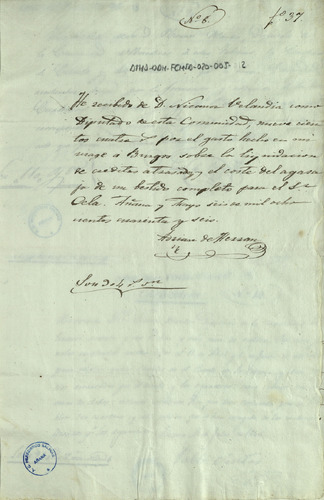 Nº 6.
fº 37
DAHS-DDH-FCHSD-020-001-2
He recibido de D. Nicanor Velandia como
Diputado de esta Comunidad nueve cien
tos cuatro r. por el gasto hecho en mi
viage a Burgos sobre la liquidacion
de creditos atrasados, y el coste del agasa
jo de un bestido completo para el Sr
Cela. Añana y Mayo seis de mil ocho
cientos cuarenta y seis.
de Herran
Son 904 rs vn